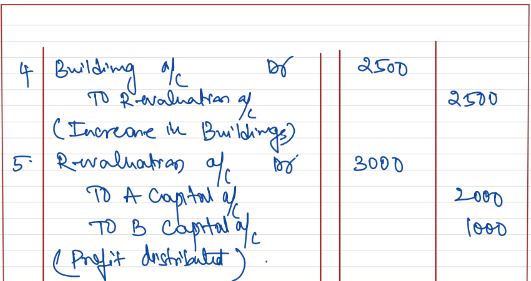 4 Building a/c Dr 2500
To Revaluation a/c 2500
(Increase in Buildings)
5. Revaluation a/c Dr 3000
To A Capital a/c 2000
To B Capital a/c 1000
(Profit distributed).